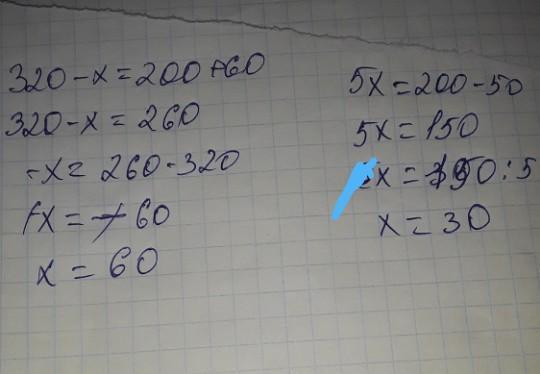 320 - x = 200 + 60
320 - x = 260
-x = 260 - 320
x = 60
x = 60
5x = 200 - 50
5x = 150
x = 150 : 5
x = 30